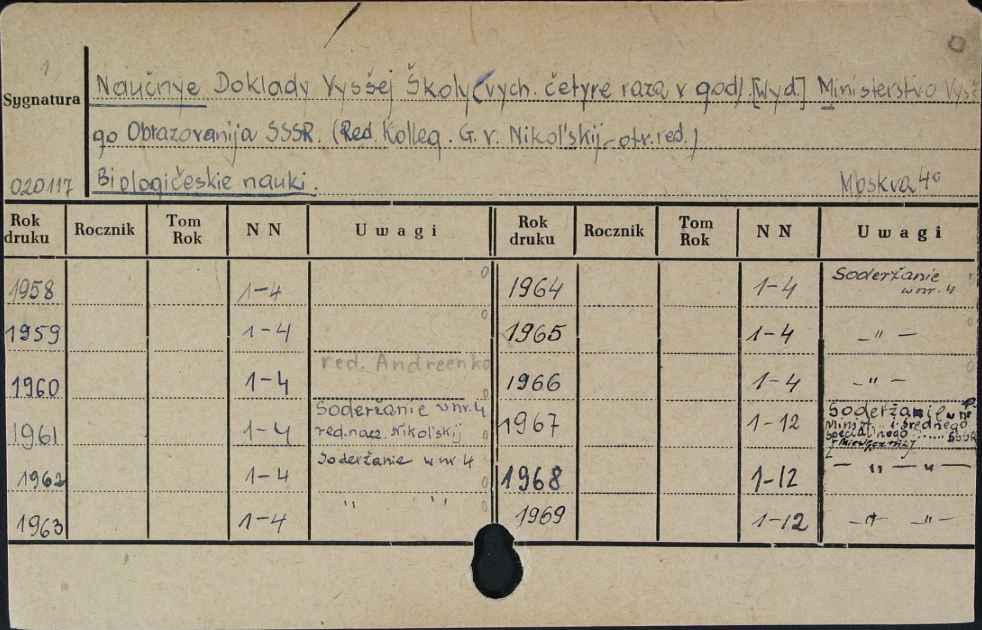 1
Sygnatura
Naučnye Doklady Vysšej Školy (vych. četyre raza v god). [Wyd.] Ministerstvo Vysš
go Obrazovanija SSSR. (Red. Kolleg. G. v. Nikol'skij - otv. red.)
020117 Biologičeskie nauki. Moskva 4°
Rok druku Rocznik Tom Rok N N Uwagi Rok druku Rocznik Tom Rok N N Uwagi
1958 1-4 0 1964 1-4 Soderžanie w nr. 4
1959 1-4 0 1965 1-4 -"-
1960 1-4 red. Andreenko 1966 1-4 -"-
1961 1-4 Soderžanie w nr. 4 red. nacz. Nikol'skij 1967 1-12 Soderžanie w nr Minist. i srednego special'nogo ..... SSSR
1962 1-4 Soderžanie w nr 4 0 1968 1-12 - " - " -
1963 1-4 " " 0 1969 1-12 -"- -"-